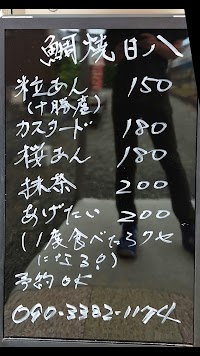 鯛焼日八
粒あん 150
(十勝産)
カスタード 180
桜あん 180
抹茶 200
あげたい 200
(1度食べたらクセ
になる!)
予約OK
090-3332-1174